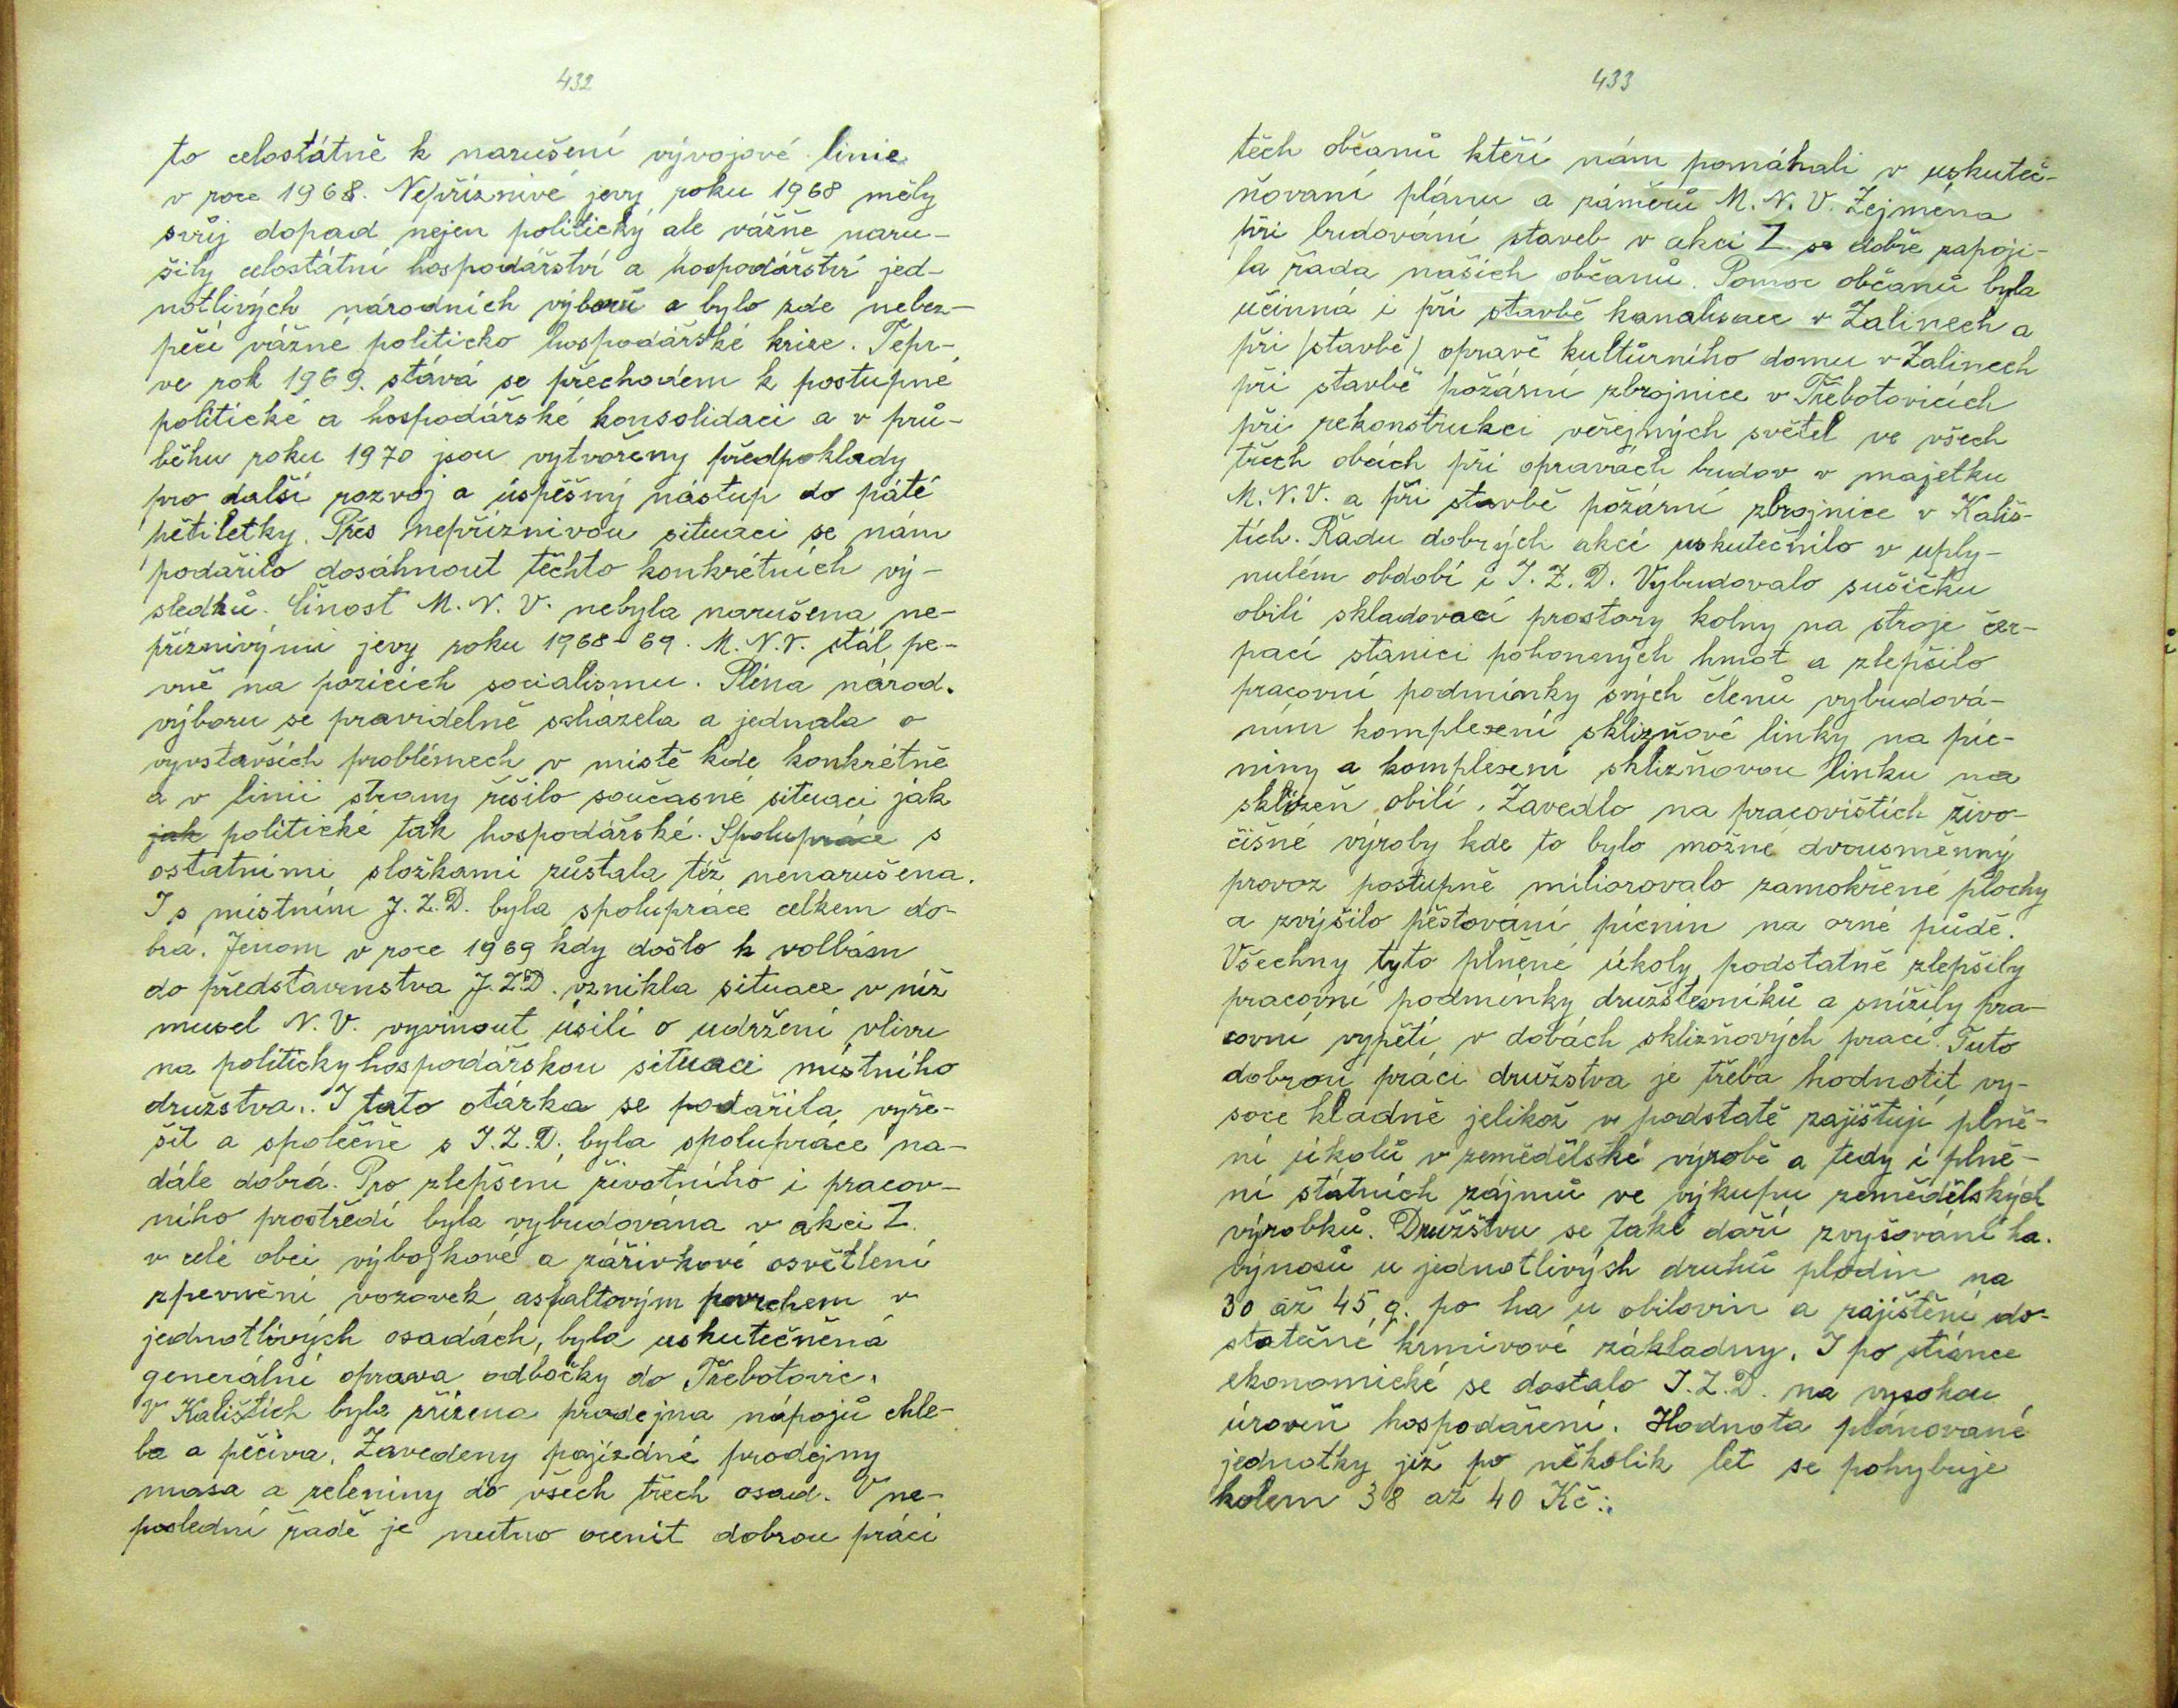 432
to celostátně k narušení vývojové linie
v roce 1968. Nepříznivé jevy roku 1968 měly
svůj dopad nejen politický ale vážně naru-
šily celostátní hospodářství a hospodářství jed-
notlivých národních výborů a bylo zde nebez-
pečí vážné politicko hospodářské krize. Tepr-
ve rok 1969. stává se přechodem k postupné
politické a hospodářské konsolidaci a v prů-
běhu roku 1970 jsou vytvořeny předpoklady
pro další rozvoj a úspěšný nástup do páté
pětiletky. Přes nepříznivou situaci se nám
podařilo dosáhnout těchto konkrétních vý-
sledků. Činost M. N. V. nebyla narušena ne-
příznivými jevy roku 1968-69. M. N. V. stál pe-
vně na pozicích socialismu. Pléna národ.
výboru se pravidelně scházela a jednala o
vyvstavších problémech v místě kde konkrétně
a v linii strany řešilo současné situaci jak
jak politické tak hospodářské. Spolupráce s
ostatními složkami zůstala též nenarušena.
I s místním J. Z. D. byla spolupráce celkem do-
brá. Jenom v roce 1969 kdy došlo k volbám
do představenstva J. Z. D. vznikla situace v níž
musel N. V. vyvinout úsilí o udržení vlivu
na politicky hospodářskou situaci místního
družstva.. I tato otázka se podařila vyře-
šit a společně s J. Z. D. byla spolupráce na-
dále dobrá. Pro zlepšení životního i pracov-
ního prostředí byla vybudována v akci Z.
v celé obci výbojkové a zářivkové osvětlení
zpevnění vozovek asfaltovým povrchem v
jednotlivých osadách, byla uskutečněná
generální oprava odbočky do Třebotovic.
V Kalištích byla zřízena prodejna nápojů chle-
ba a pečiva. Zavedeny pojízdné prodejny
masa a zeleniny do všech třech osad. V ne-
poslední řadě je nutno ocenit dobrou práci
433
těch občanů kteří nám pomáhali v uskuteč-
ňovaní plánu a záměrů M. N. V. Zejména
při budování staveb v akci Z se dobře zapoji-
la řada našich občanů. Pomoc občanů byla
učinná i při stavbě kanalisace v Zalinech a
při /stavbě/ opravě kultůrního domu v Zalinech
při stavbě požární zbrojnice v Třebotovicích
při rekonstrukci veřejných světel ve všech
třech obcích při opravách budov v majetku
M. N. V. a při stavbě požární zbrojnice v Kališ-
tích. Řadu dobrých akcí uskutečnilo v uply-
nulém období i J. Z. D. Vybudovalo sušičku
obilí skladovací prostory kolny na stroje čer-
pací stanici pohonných hmot a zlepšilo
pracovní podmínky svých členů vybudová-
ním komplexní sklizňové linky na píc-
niny a komplexení sklizňovou linku na
sklizeň obilí. Zavedlo na pracovištích živo-
čišné výroby kde to bylo možné dvousměnný
provoz postupně miliorovalo zamokřené plochy
a zvýšilo pěstování pícnin na orné půdě.
Všechny tyto plněné úkoly podstatně zlepšily
pracovní podmínky družstevníků a snížily pra-
covní vypětí v dobách sklizňových prací. Tuto
dobrou práci družstva je třeba hodnotit vy-
soce kladně jelikož v podstatě zajištují plně-
ní úkolů v zemědělské výrobě a tedy i plně-
ní státních zájmů ve výkupu zemědělských
výrobků. Družstvu se také daří zvyšování ha.
výnosů u jednotlivých druhů plodin na
30 až 45 q. po ha u obilovin a zajištění do-
statečné krmivové základny. I po stránce
ekonomické se dostalo J. Z. D. na vysokou
úroveň hospodaření. Hodnota plánované
jednotky již po několik let se pohybuje
kolem 38 až 40 Kč:.